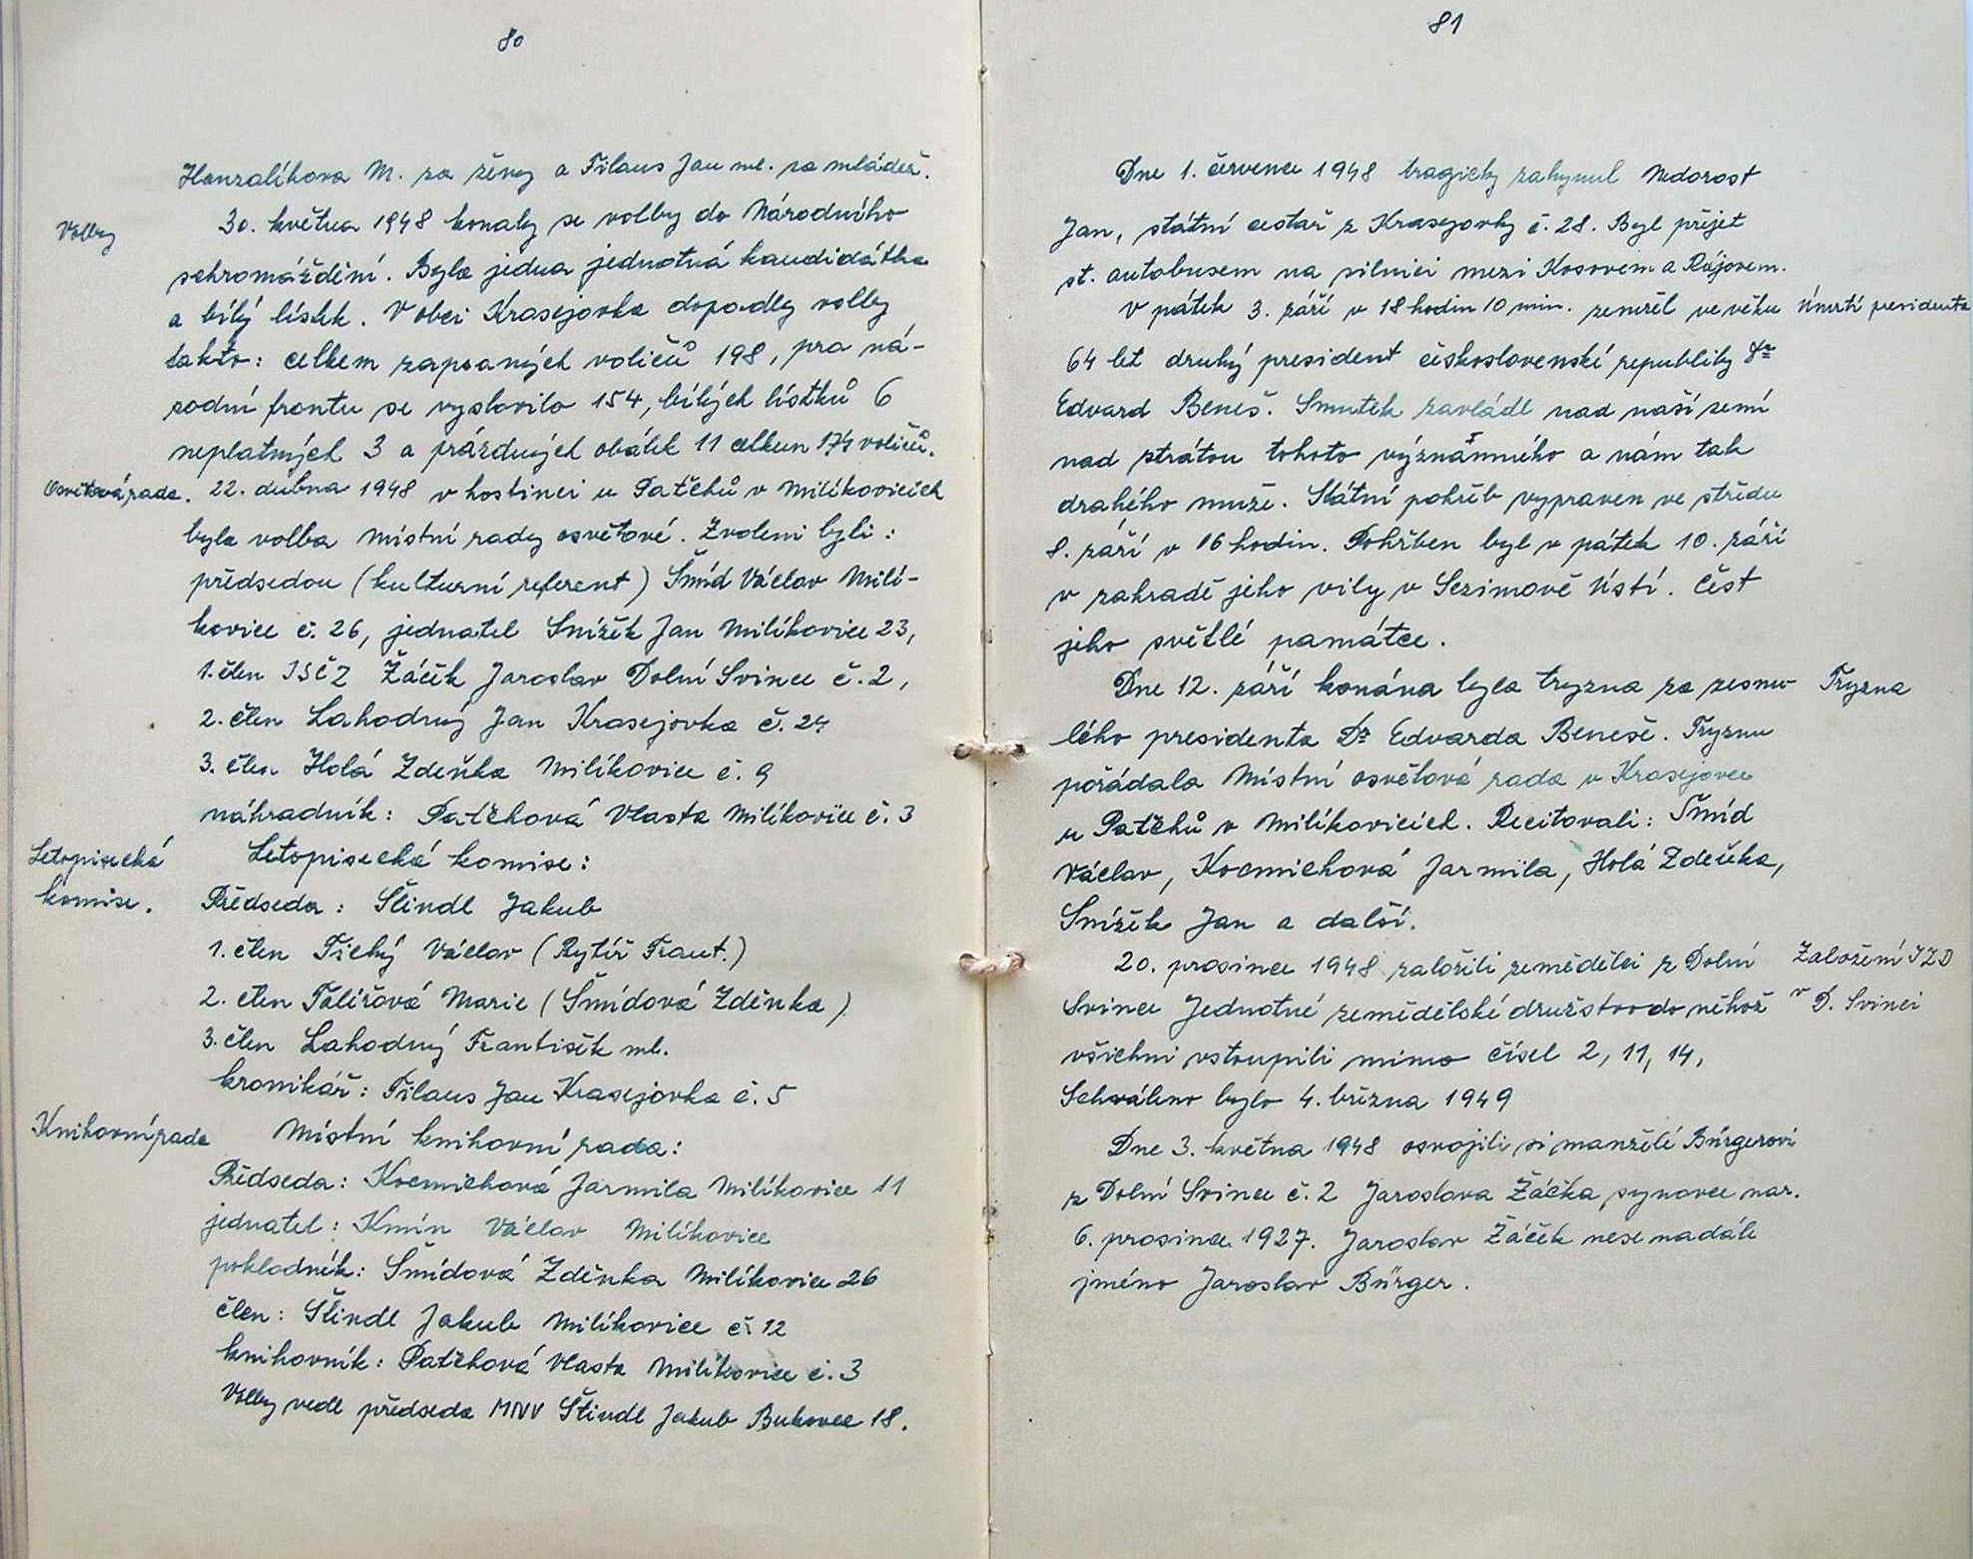 80
Hanzalíkova M. za ženy a Filaus Jan ml. za mládež.
Volby
30. května 1948 konaly se volby do Národního
schromáždění. Byla jedna jednotná kandidátka
a bílý lístek. V obci Krasejovka dopadly volby
takto: celkem zapsaných voličů 198, pro ná-
rodní frontu se vyslovilo 154, bílých lístků 6
neplatných 3 a prázdných obálek 11 celkem 174 voličů.
Osvětová rada. 22. dubna 1948 v hostinci u Paťhů v Milíkovicích
byla volba místní rady osvětové. Zvoleni byli:
předsedou (kulturní referent) Šmíd Václav Milí-
kovice č. 26, jednatel Snížek Jan Milíkovice 23,
1. člen JSČZ Žáček Jaroslav Dolní Svince č. 2,
2. člen Lahodný Jan Krasejovka č. 24
3. člen Holá Zdeňka Milíkovice č. 9
náhradník: Paťhová Vlasta Milíkovice č. 3
Letopisecká
komise.
Letopisecká komise:
Předseda: Šindl Jakub
1. člen Tichý Václav (Rytíř Frant.)
2. člen Talířová Marie (Šmídová Zděnka)
3. člen Lahodný František ml.
kronikář: Filaus Jan Krasejovka č. 5
Knihovní rada
Místní knihovní rada:
Předseda: Kocmichová Jarmila Milíkovice 11
jednatel: Kmín Václav Milíkovice
pokladník: Šmídová Zděnka Milíkovice 26
člen: Šindl Jakub Milíkovice č 12
knihovník: Paťhová Vlasta Milíkovice č. 3
Volby vedl předseda MNV Šindl Jakub Bukovec 18.
81
Dne 1. července 1948 tragicky zahynul Nedorost
Jan, státní cestař z Krasejovky č. 28. Byl přejet
st. autobusem na silnici mezi Kosovem a Rájovem.
V pátek 3. září v 18 hodin 10 min. zemřel ve věku
Úmrtí presidenta
64 let druhý president československé republiky Dr
Edvard Beneš. Smutek zavládl nad naší zemí
nad ztrátou tohoto významného a nám tak
drahého muže. Státní pohřeb vypraven ve středu
8. září v 16 hodin. Pohřben byl v pátek 10. září
v zahradě jeho vily v Sezimově Ústí. Čest
jeho světlé památce.
Dne 12. září konána byla tryzna za zesnu-
Tryzna
lého presidenta Dr Edvarda Beneše. Tryznu
pořádala Místní osvětová rada v Krasejovce
u Paťhů v Milíkovicích. Recitovali: Šmíd
Václav, Kocmichová Jarmila, Holá Zdeňka,
Snížek Jan a další.
20. prosince 1948 založili zemědělci z Dolní
Založení JZD
Svince Jednotné zemědělské družstvo do něhož
v D. Svinci
všichni vstoupili mimo čísel 2, 11, 14,
Schváleno bylo 4. března 1949
Dne 3. května 1948 osvojili si manželé Bürgerovi
z Dolní Svince č. 2 Jaroslava Žáčka synovce nar.
6. prosince 1927. Jaroslav Žáček nese nadále
jméno Jaroslav Bürger.